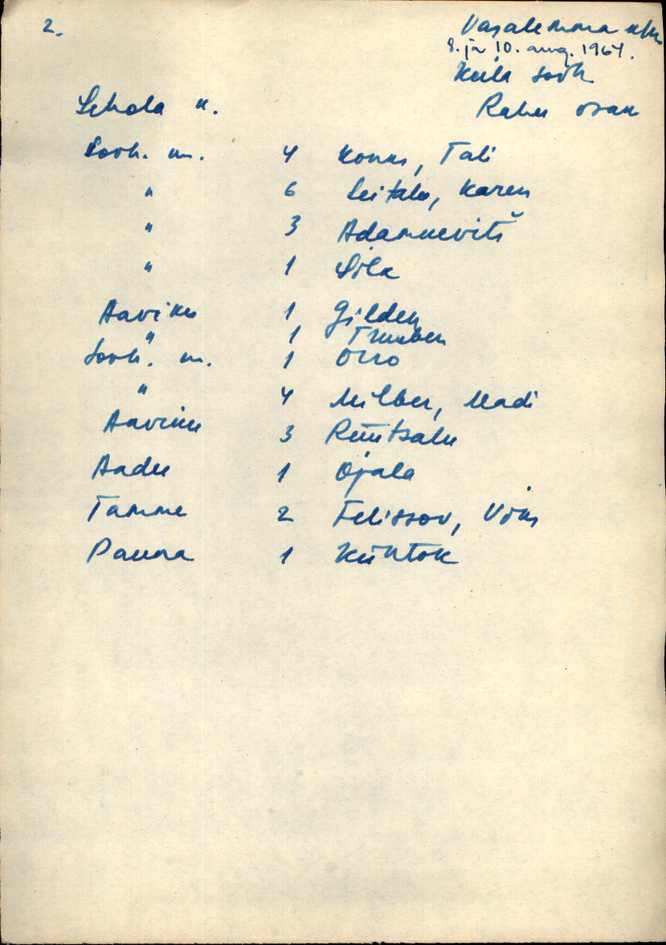 2.
Vasalemma
8. ja 10. aug. 1964.
Keila sovh
Rahu osak
Lehola k.
Sovh. m. 4 Konks, Tali
" 6 Leitalu, Karen
" 3 Adamnevitš
" 1 Sila
Aaviku 1 Gilden
" 1 Truuben
Sovh. m. 1 Orro
" 4 Milber, Madi
Aaviku 3 Rüütsalu
Aadu 1 Ojala
Tamme 2 Felissov, Võks
Pauna 1 Kiihtok